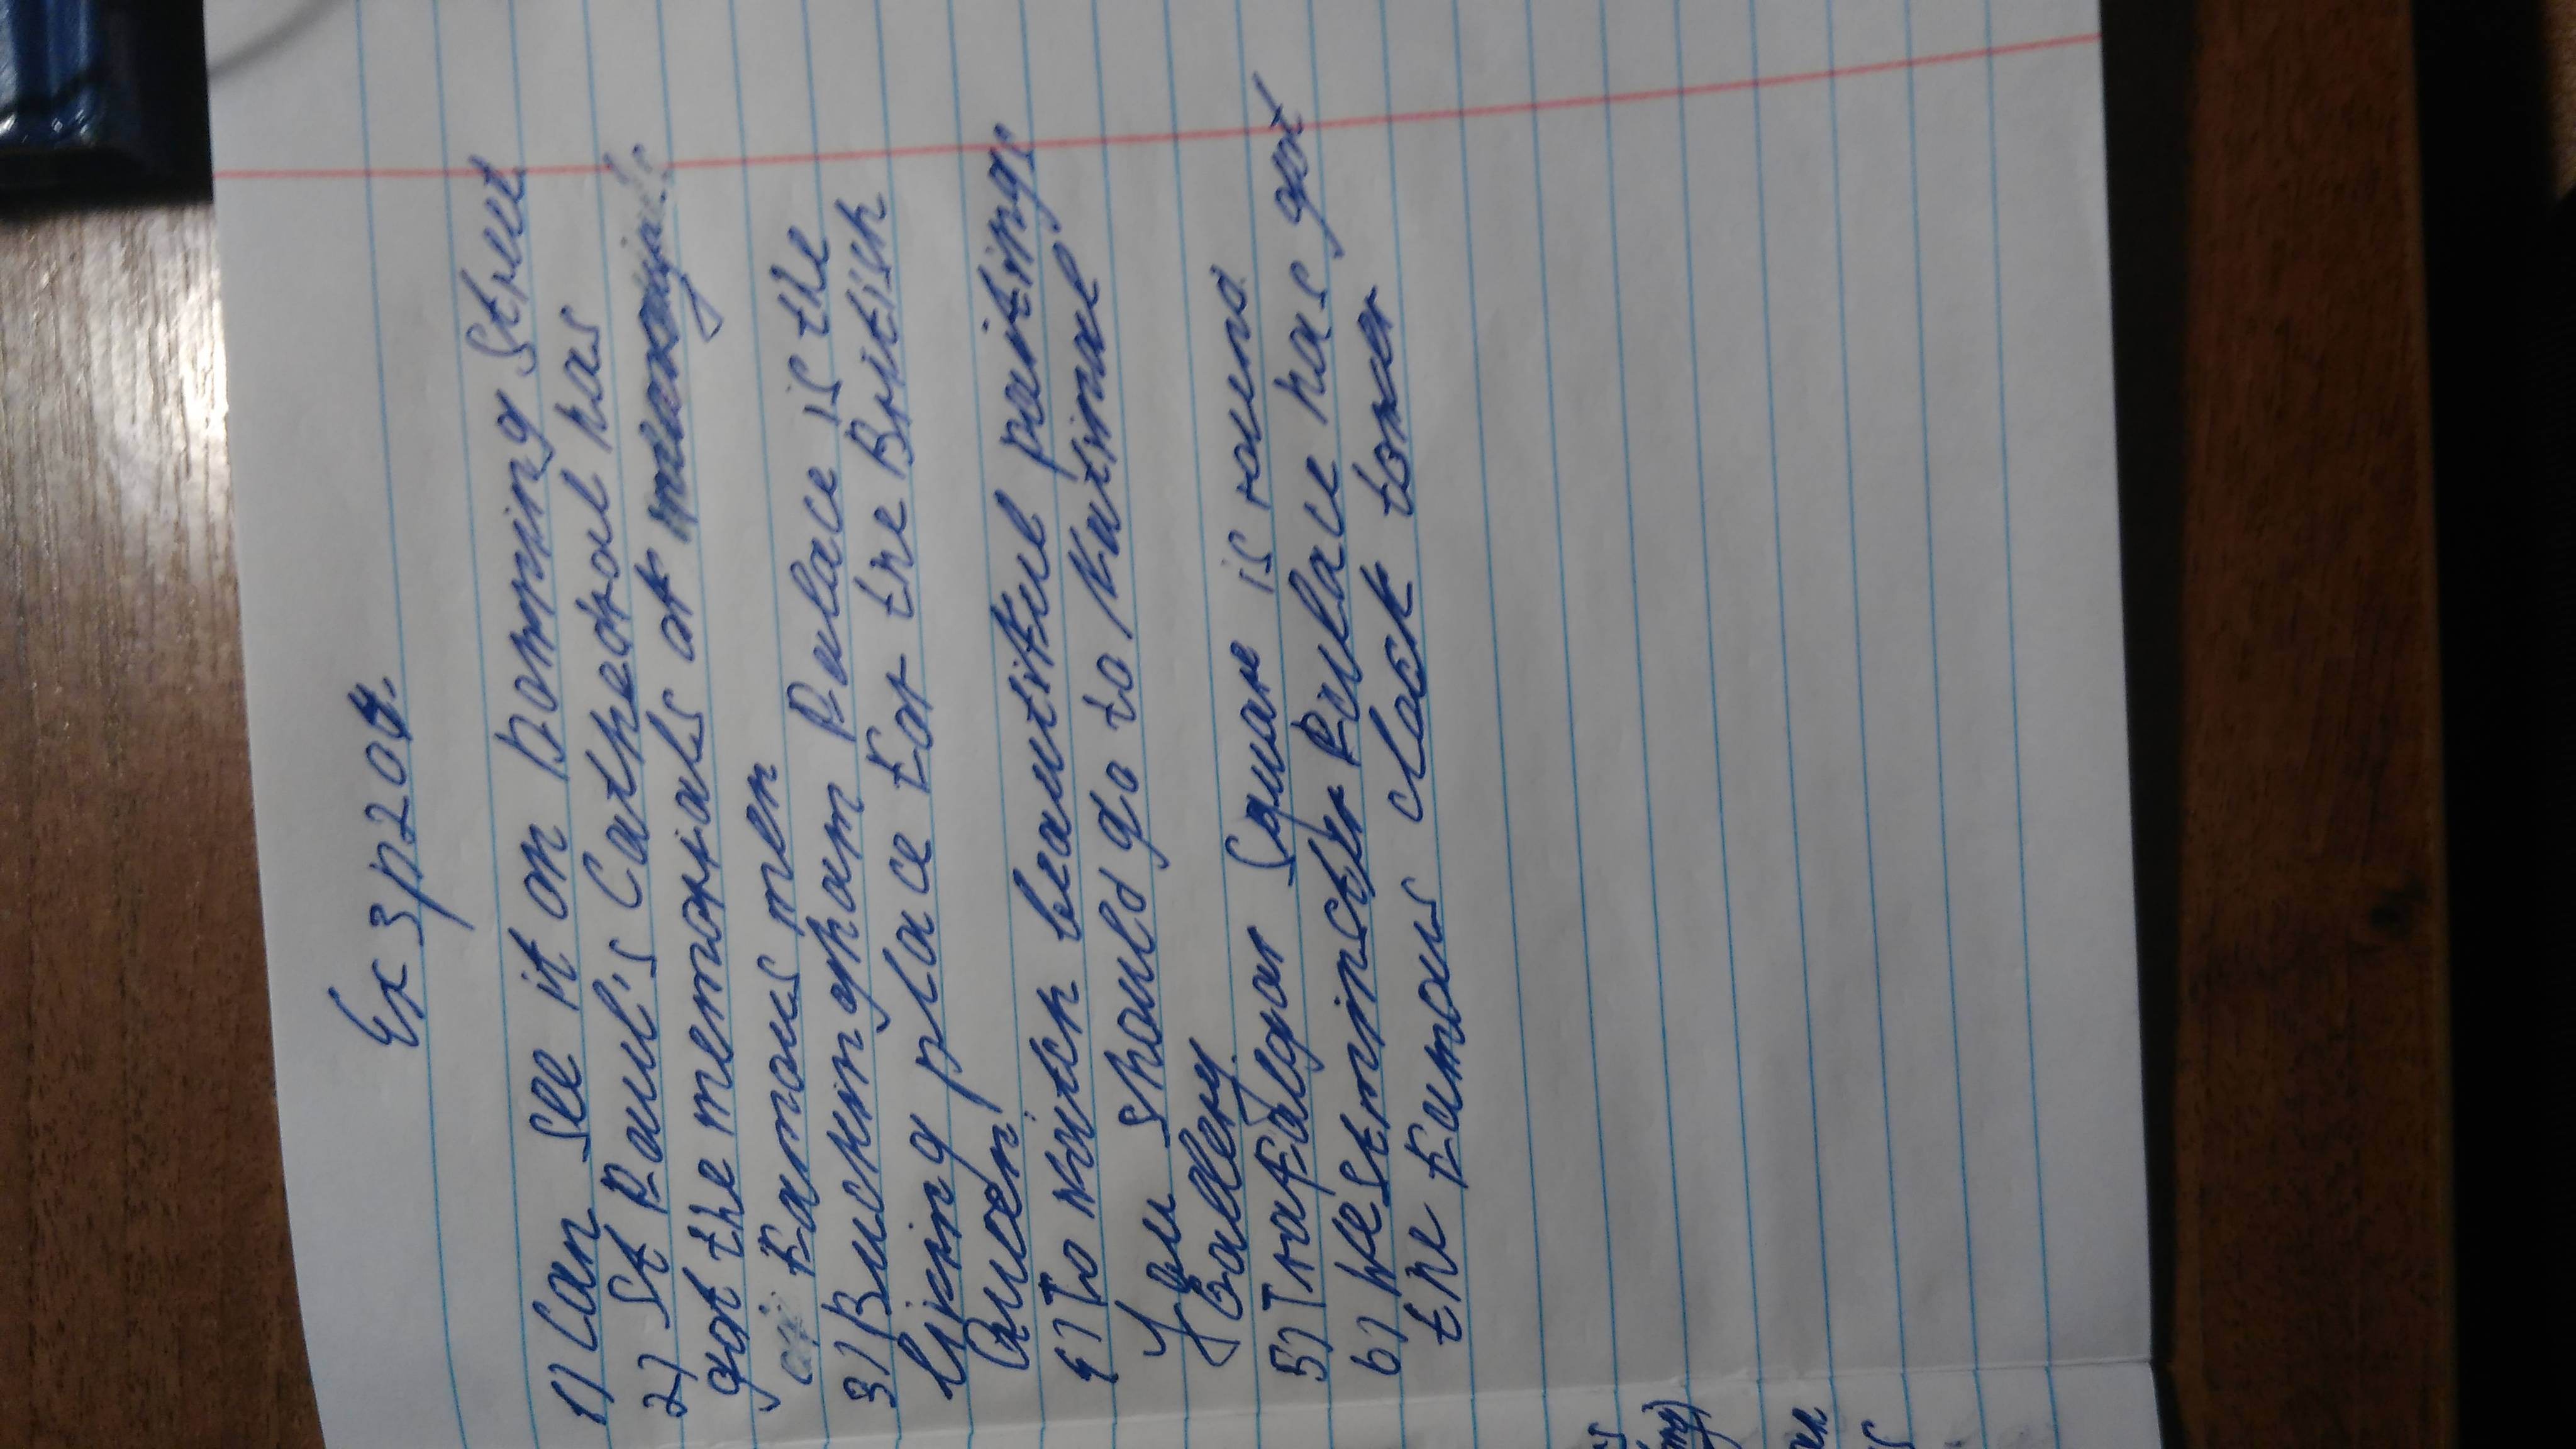 Ex 3 p204.
1) Can see it on Downing Street
2) St Paul's Cathedral has
got the memorials of
famous men
3) Buckingham Palace is the
living place for the British
Queen.
4) To watch beautiful paintings
you should go to National
Gallery.
5) Trafalgar Square is round
6) Westminster Pallace has got
the famous clock tower